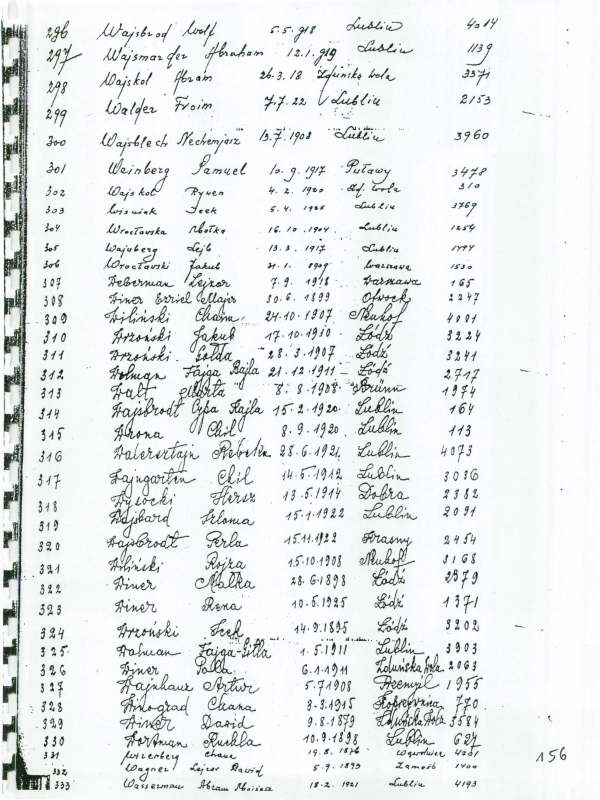 296 Wajsbrod Wolf 5.5.918 Lublin 4014
297 Wajsmarder Abraham 12.1.919 Lublin 1139
298 Wajskol Abram 26.3.18 Zduńska Wola 3371
299 Walder Froim 7.7.22 Lublin 2153
300 Wajsblech Nechemjasz 13.7.1908 Lublin 3960
301 Wainberg Samuel 10.9.1917 Puławy 3478
302 Wajskol Rywen 4.2.1920 Zd. Wola 310
303 Wiśniak Icek 5.4.1925 Lublin 3769
304 Wrocławska 16.10.1904 Lublin 1254
305 Wajnberg Lejb 13.3.1917 Lublin
306 Wrocławski Jakub 1909 Warszawa 1530
307 Weberman Lejzor 7.9.1918 Warszawa 165
308 Winer Ezriel Majer 30.6.1899 Otwock 2247
309 Wiliński Chaim 24.10.1907 4001
310 Wrzoński Jakub 17.10.1910 Łódź 3224
311 Wrzoński Golda 28.3.1907 Łódź 3241
312 Wolman Fajga Bajla 21.12.1911 Łódź 2717
313 Walt Marta 8.8.1908 Brünn 1974
314 Wajsbrodt Cypa Hajla 15.2.1920 Lublin 164
315 Wrona Chil 8.9.1920 Lublin 113
316 Walersztajn Rebeka 28.6.1921 Lublin 4073
317 Wajngarten Chil 14.5.1912 Lublin 3036
318 Wysocki Hersz 13.5.1914 Dobra 2382
319 Wajsbard Szloma 15.1.1922 Lublin 2091
320 Wajsbrodt Perla 15.11.1922 2454
321 Wiliński Rojza 15.10.1908 3168
322 Winer Malka 28.6.1898 Łódź 2379
323 Winer Rena 10.5.1925 Łódź 1371
324 Wrzoński Icek 14.9.1895 Łódź 3202
325 Wolman Fajga-Gitla 1.5.1911 Lublin 3903
326 Winer Polla 6.1.1911 Zduńska Wola 2063
327 Wajnhaus Artur 5.7.1908 Przemyśl 1955
328 Winograd Chana 8-3.1915 770
329 Winer Dawid 9.8.1879 Zduńska Wola 3584
330 Wortman Ruchla 10.9.1898 Lublin 627
331 Wirzenberg Chana 19.8.1876 4201
332 Wagner Lejzor Dawid 5.9.1893 Zamość 1400
333 Wasserman Abram Mojżesz 18.2.1921 Lublin 4193
156